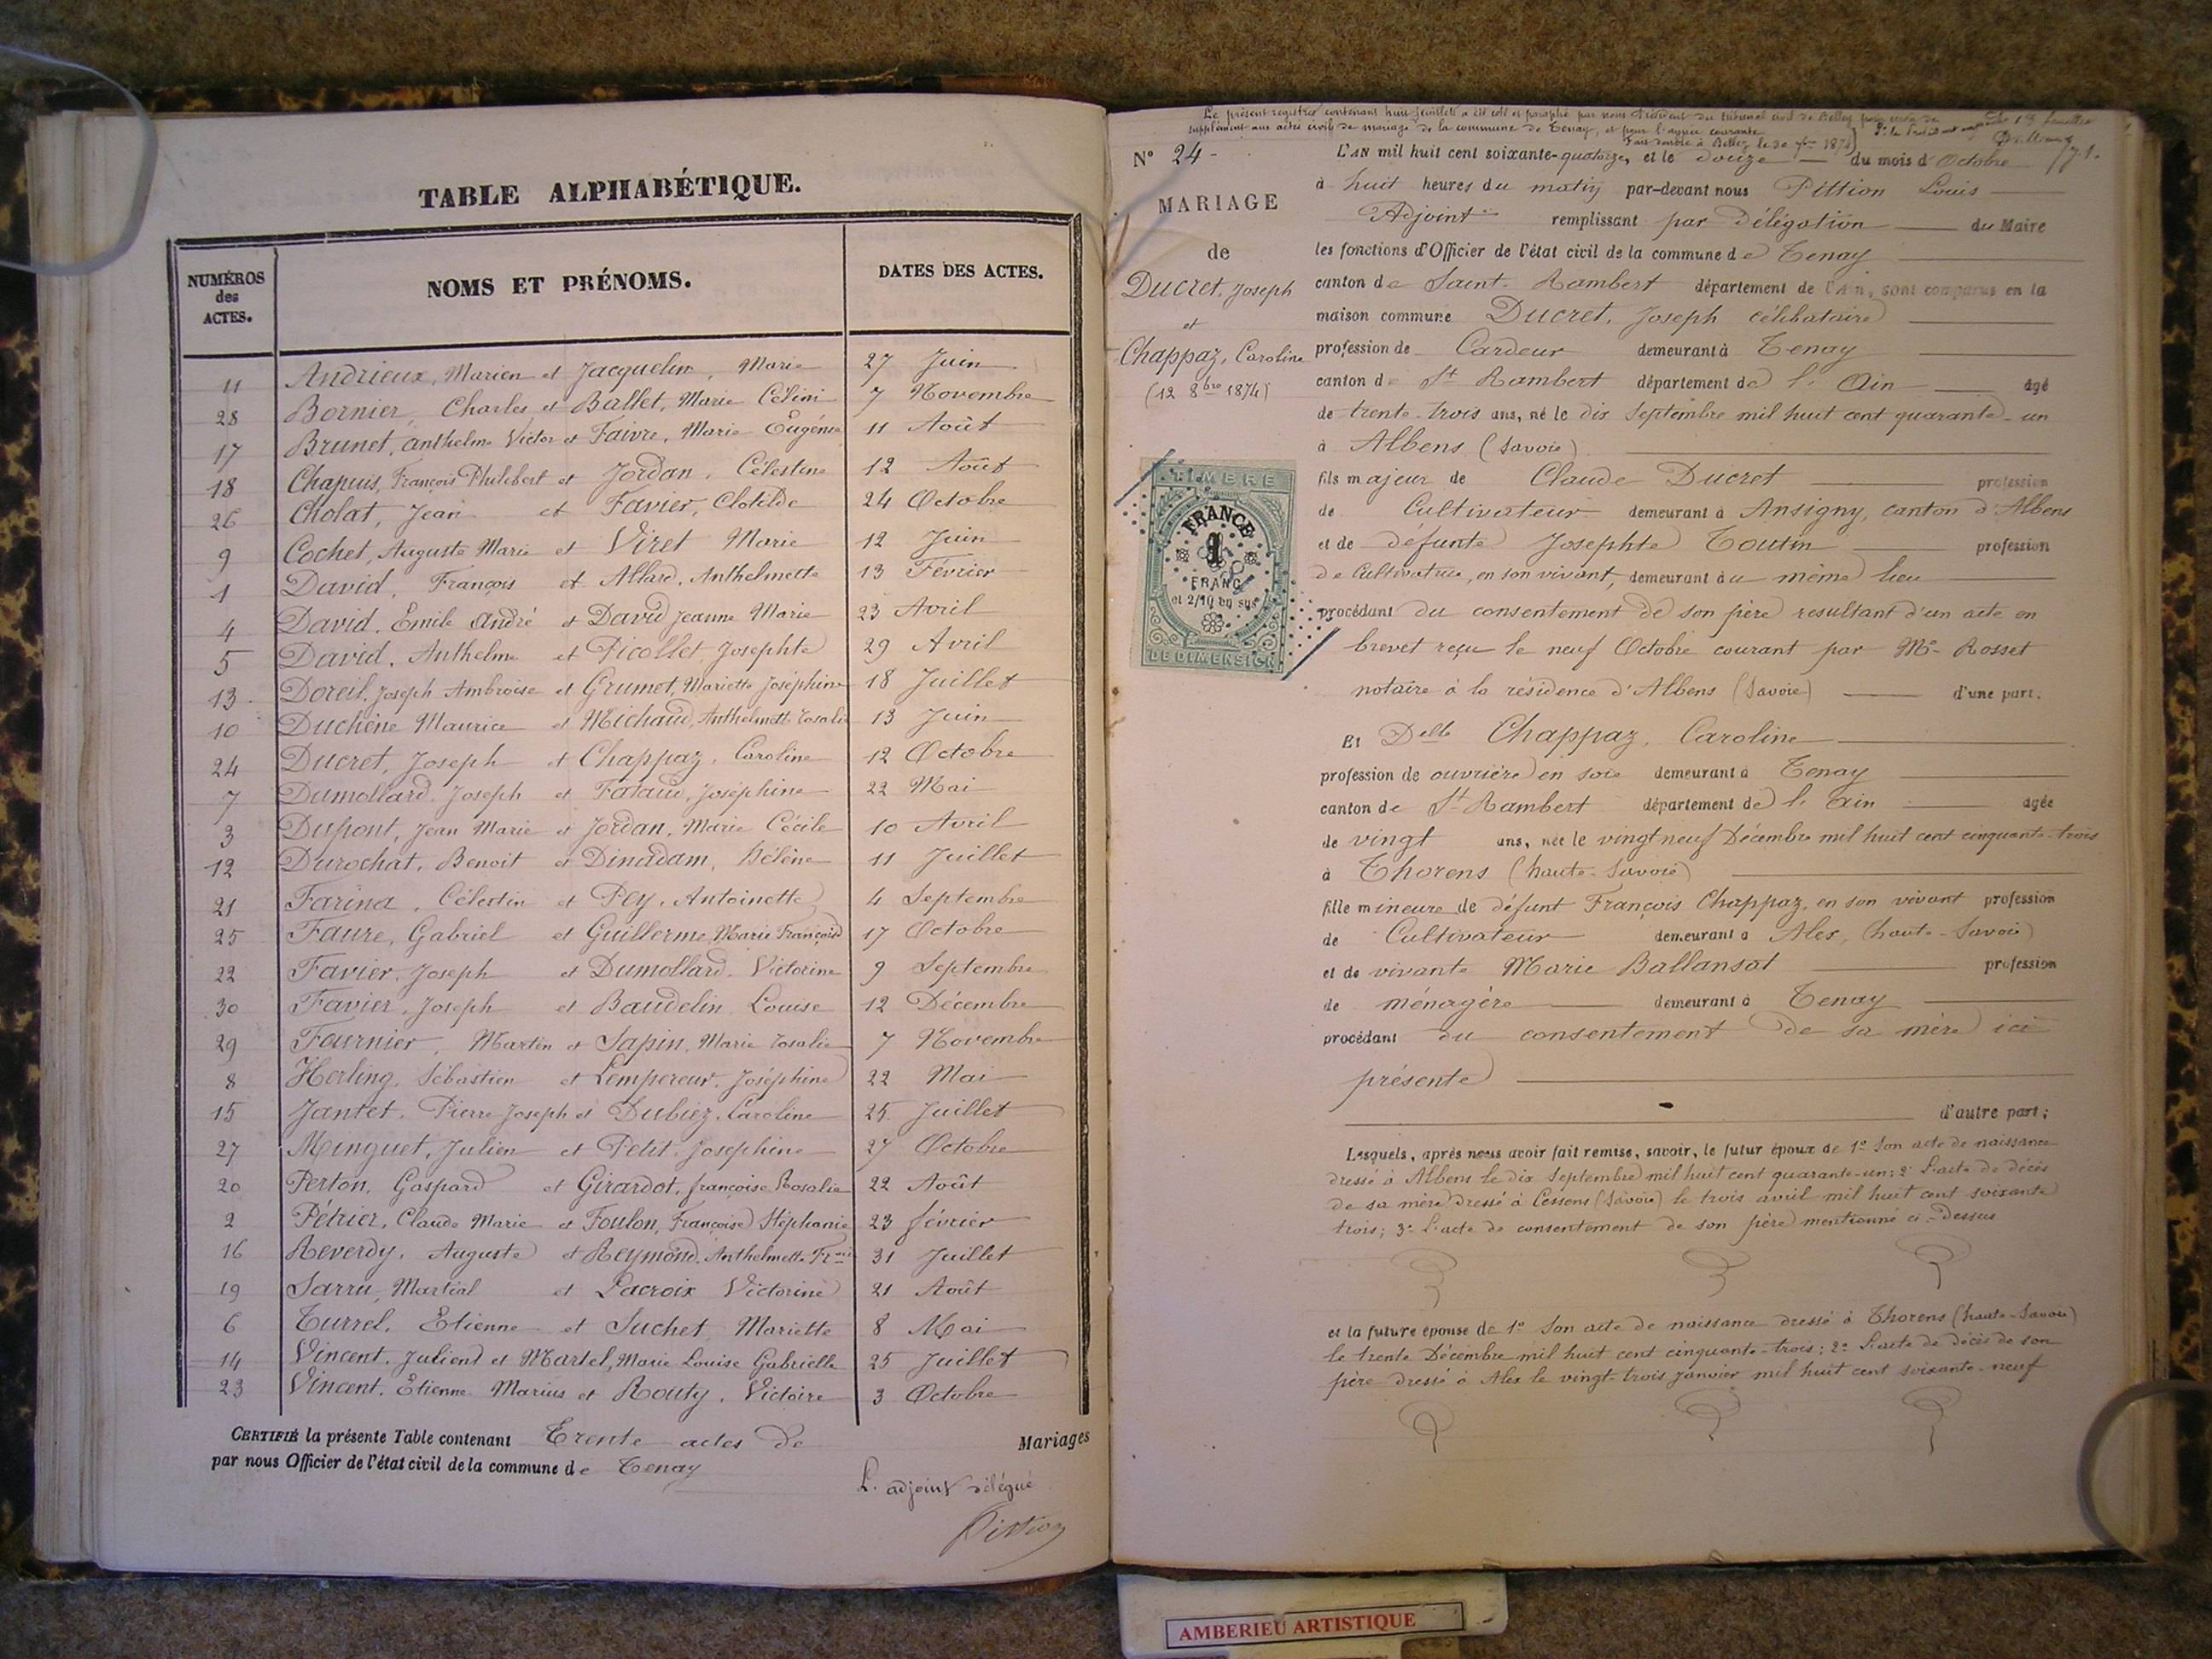 TABLE ALPHABÉTIQUE.
NUMÉROS des ACTES. NOMS ET PRÉNOMS. DATES DES ACTES.
11 Andrieux, Marien et Jacquelin, Marie 27 Juin
28 Bornier, Charles et Ballet, Marie Célini 7 Novembre
17 Brunet, Anthelme Victor et Faivre, Marie Eugénie 11 Août
18 Chapuis, François Philibert et Jordan, Célestine 12 Août
26 Cholat, Jean et Favier, Clotilde 24 Octobre
9 Cochet, Auguste Marie et Viret Marie 12 Juin
1 David, François et Allard, Anthelmette 13 Février
4 David, Emile André et David Jeanne Marie 23 Avril
5 David, Anthelme et Picollet, Josephte 29 Avril
13 Doreil, Joseph Ambroise et Grumet, Mariette Joséphine 18 Juillet
10 Duchêne Maurice et Michaud, Anthelmette Rosalie 13 Juin
24 Ducret, Joseph et Chappaz, Caroline 12 Octobre
7 Dumollard, Joseph et Joséphine 22 Mai
3 Dupont, Jean Marie et Jordan, Marie Cécile 10 Avril
12 Durochat, Benoit et Dinadam, Hélène 11 Juillet
21 Farina, Célestin et Pey, Antoinette 4 Septembre
25 Faure, Gabriel et Guillerme, Marie Françoise 17 Octobre
22 Favier, Joseph et Dumollard, Victorine 9 Septembre
30 Favier, Joseph et Baudelin, Louise 12 Décembre
29 Fournier, Martin et Sapin, Marie Rosalie 7 Novembre
8 Herling, Sébastien et Lempereur, Joséphine 22 Mai
15 Jantet, Pierre Joseph et Dubiez, Caroline 25 Juillet
27 Minguet, Julien et Petit, Josephine 27 Octobre
20 Perton, Gaspard et Girardot, françoise Rosalie 22 Août
2 Pétrier, Claude Marie et Foulon, Françoise Stéphanie 23 février
16 Reverdy, Auguste et Reymond, Anthelmette 31 Juillet
19 Sarru, Martial et Lacroix Victorine 21 Août
6 Turrel, Etienne et Suchet, Mariette 8 Mai
14 Vincent, Julien et Martel, Marie Louise Gabrielle 25 Juillet
23 Vincent, Etienne Marius et Routy, Victoire 3 Octobre
CERTIFIÉ la présente Table contenant Trente actes de Mariages
par nous Officier de l'état civil de la commune de Tenay
L'adjoint délégué
Pittion
Le présent registre contenant huit feuillets a été coté et paraphé par nous Président du tribunal civil de Belley pour servir de
supplément aux actes civils de mariage de la commune de Tenay, et pour l'année courante
N° 24 -
MARIAGE
de
Ducret, Joseph
et
Chappaz, Caroline
(12 8bre 1874)
TIMBRE
FRANCE
1
FRANC
et 2/10 en sus
DE DIMENSION
L'AN mil huit cent soixante-quatorze, et le douze du mois d'Octobre
à huit heures du matin par-devant nous Pittion Louis
Adjoint remplissant par délégation du Maire
les fonctions d'Officier de l'état civil de la commune de Tenay
canton de Saint-Rambert département de l'Ain, sont comparus en la
maison commune Ducret, Joseph célibataire
profession de Cardeur demeurant à Tenay
canton de St Rambert département de l'Ain âgé
de trente-trois ans, né le dix Septembre mil huit cent quarante-un
à Albens (Savoie)
fils majeur de Claude Ducret profession
de Cultivateur demeurant à Ansigny, canton d'Albens
et de défunte Josephte Toutin profession
de Cultivatrice, en son vivant, demeurant au même lieu
procédant du consentement de son père résultant d'un acte en
brevet reçu le neuf Octobre courant par Me Rosset
notaire à la résidence d'Albens (Savoie) d'une part.
Et Delle Chappaz, Caroline
profession de ouvrière en soie demeurant à Tenay
canton de St Rambert département de l'Ain agée
de vingt ans, née le vingt neuf Décembre mil huit cent cinquante-trois
à Thorens (haute-Savoie)
fille mineure de défunt François Chappaz, en son vivant profession
de Cultivateur demeurant à Alex, (haute-Savoie)
et de vivante Marie Ballansat profession
de ménagère demeurant à Tenay
procédant du consentement de sa mère ici
présente
d'autre part;
Lesquels, après nous avoir fait remise, savoir, le futur époux de 1° Son acte de naissance
dressé à Albens le dix Septembre mil huit cent quarante-un; 2° L'acte de décès
de sa mère dressé à Cessens (Savoie) le trois avril mil huit cent soixante
trois; 3° L'acte de consentement de son père mentionné ci-dessus
et la future épouse de 1° Son acte de naissance dressé à Thorens (haute-Savoie)
le trente Décembre mil huit cent cinquante-trois; 2° L'acte de décès de son
père dressé à Alex le vingt-trois Janvier mil huit cent soixante-neuf
AMBERIEU ARTISTIQUE